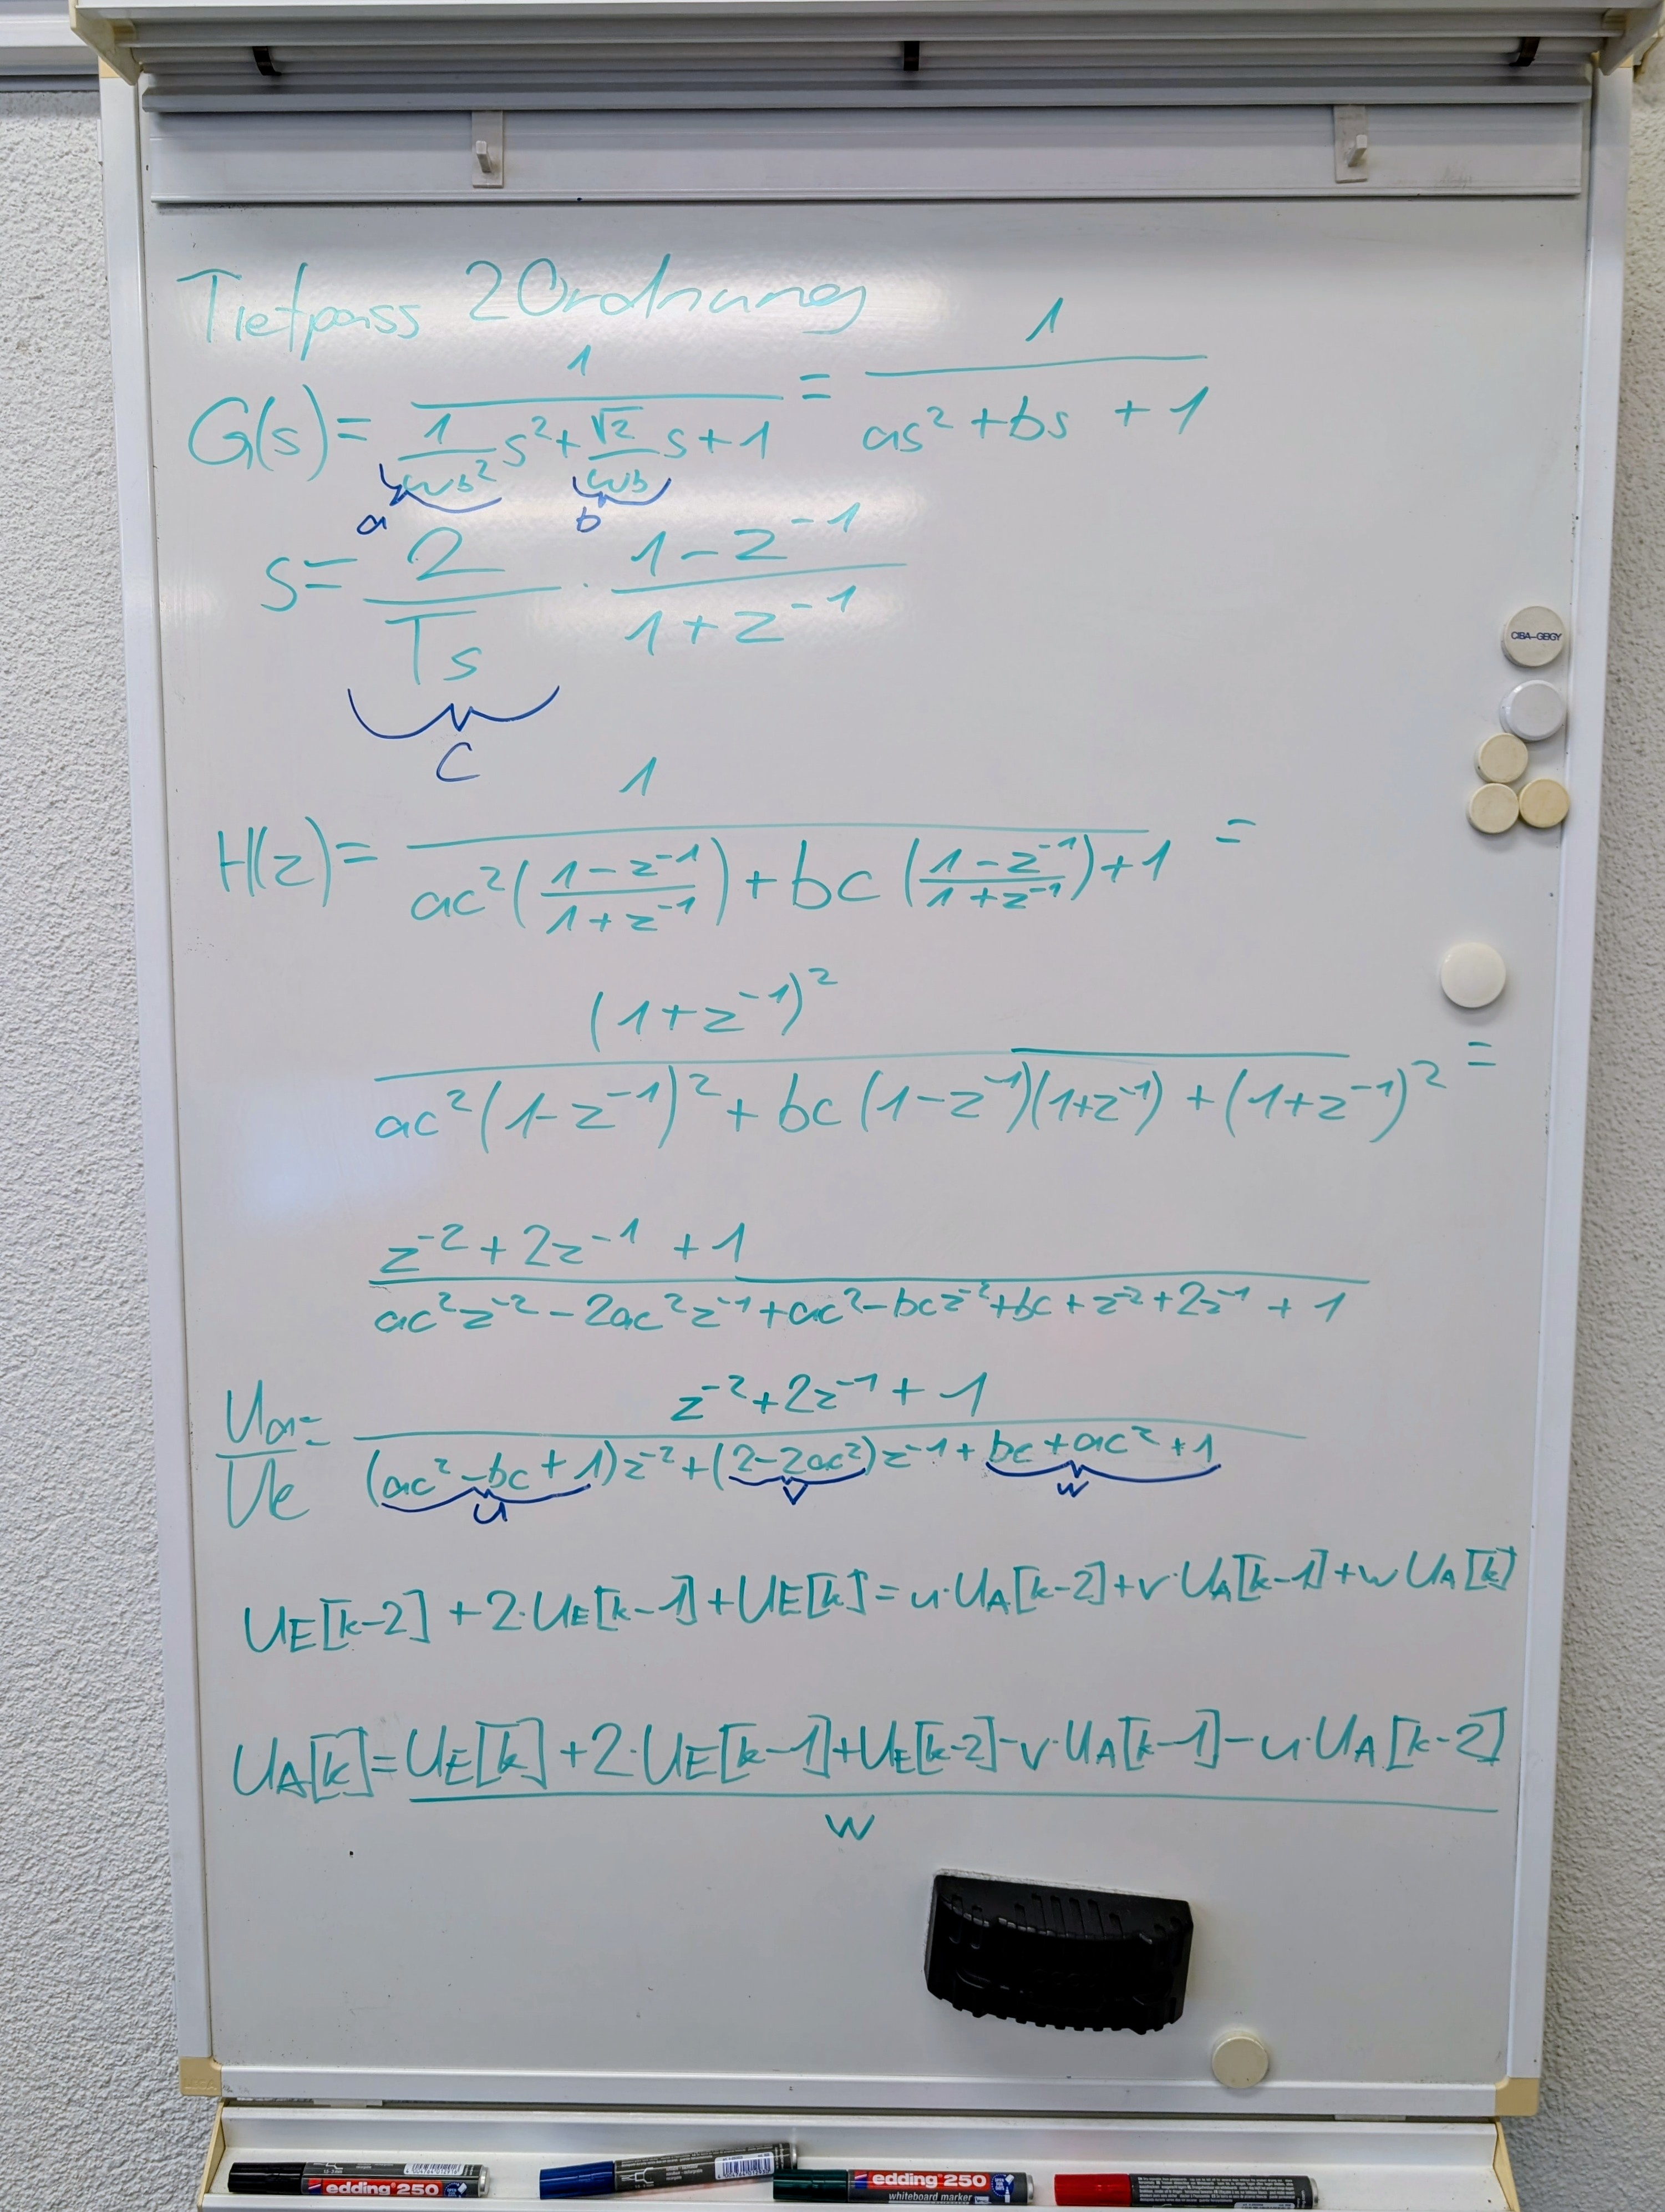 Tiefpass 2Ordnung
G(s) = 1 / (1/ωb² s² + √2/ωb s + 1) = 1 / (as² + bs + 1)
a b
s = 2/Ts · (1-z⁻¹)/(1+z⁻¹)
c
H(z) = 1 / (ac²((1-z⁻¹)/(1+z⁻¹)) + bc((1-z⁻¹)/(1+z⁻¹)) + 1) =
(1+z⁻¹)² / (ac²(1-z⁻¹)² + bc(1-z⁻¹)(1+z⁻¹) + (1+z⁻¹)²) =
(z⁻² + 2z⁻¹ + 1) / (ac²z⁻² - 2ac²z⁻¹ + ac² - bcz⁻² + bc + z⁻² + 2z⁻¹ + 1)
Ua/Ue = (z⁻² + 2z⁻¹ + 1) / ((ac² - bc + 1)z⁻² + (2-2ac²)z⁻¹ + bc + ac² + 1)
u v w
UE[k-2] + 2·UE[k-1] + UE[k] = u·UA[k-2] + v·UA[k-1] + w UA[k]
UA[k] = (UE[k] + 2·UE[k-1] + UE[k-2] - v·UA[k-1] - u·UA[k-2]) / w
CIBA-GEIGY
edding 250
edding 250
whiteboard marker